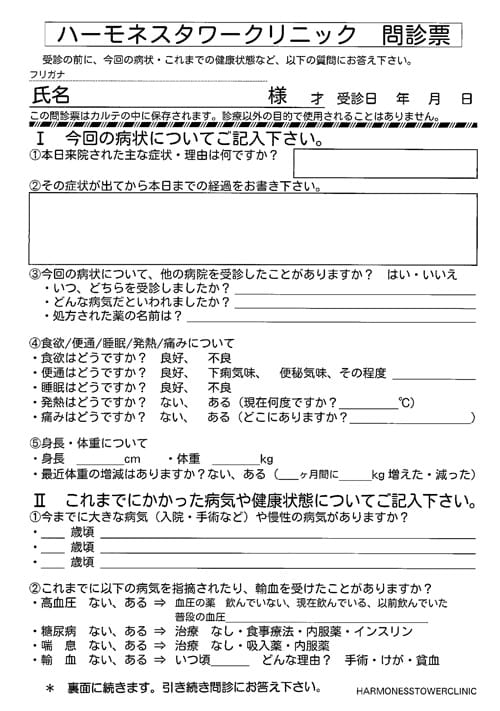 ハーモネスタワークリニック 問診票
受診の前に、今回の病状・これまでの健康状態など、以下の質問にお答え下さい。
フリガナ
氏名 様 才 受診日 年 月 日
この問診票はカルテの中に保存されます。診療以外の目的で使用されることはありません。
Ⅰ 今回の病状についてご記入下さい。
①本日来院された主な症状・理由は何ですか？
②その症状が出てから本日までの経過をお書き下さい。
③今回の病状について、他の病院を受診したことがありますか？ はい・いいえ
・いつ、どちらを受診しましたか？
・どんな病気だといわれましたか？
・処方された薬の名前は？
④食欲/便通/睡眠/発熱/痛みについて
・食欲はどうですか？ 良好、 不良
・便通はどうですか？ 良好、 下痢気味、 便秘気味、その程度
・睡眠はどうですか？ 良好、 不良
・発熱はどうですか？ ない、 ある（現在何度ですか？ ℃）
・痛みはどうですか？ ない、 ある（どこにありますか？ ）
⑤身長・体重について
・身長 cm ・体重 kg
・最近体重の増減はありますか？ない、ある（ ヶ月間に kg 増えた・減った）
Ⅱ これまでにかかった病気や健康状態についてご記入下さい。
①今までに大きな病気（入院・手術など）や慢性の病気がありますか？
・ 歳頃
・ 歳頃
・ 歳頃
②これまでに以下の病気を指摘されたり、輸血を受けたことがありますか？
・高血圧 ない、ある ⇒ 血圧の薬 飲んでいない、現在飲んでいる、以前飲んでいた
普段の血圧
・糖尿病 ない、ある ⇒ 治療 なし・食事療法・内服薬・インスリン
・喘 息 ない、ある ⇒ 治療 なし・吸入薬・内服薬
・輸 血 ない、ある ⇒ いつ頃 どんな理由？ 手術・けが・貧血
＊ 裏面に続きます。引き続き問診にお答え下さい。
HARMONESSTOWERCLINIC